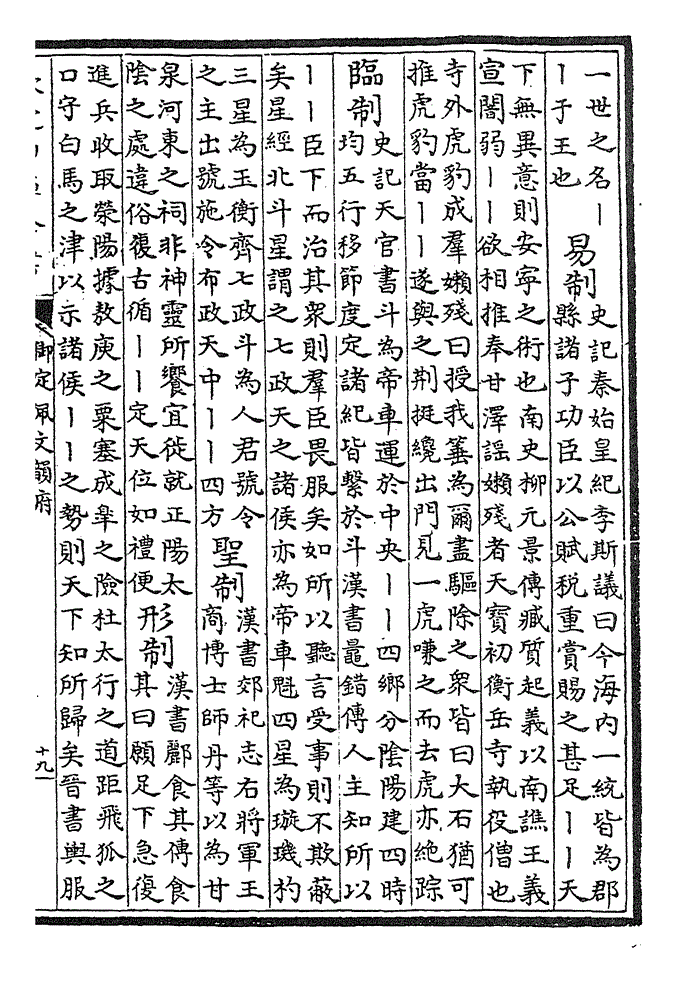 一世之名丨
丨子王也
易制
史記秦始皇紀李斯議曰今海內一統皆為郡
縣諸子功臣以公賦税重賞賜之甚足丨丨天
下無異意則安寧之術也南史柳元景傳臧質起義以南譙王義
宣闇弱丨丨欲相推奉甘澤謡嬾殘者天寶初衡岳寺執役僧也
寺外虎豹成羣嬾殘曰授我箠為爾盡驅除之衆皆曰大石猶可
推虎豹當丨丨遂與之荆挺纔出門見一虎嗛之而去虎亦絶踪
臨制
史記天官書斗為帝車運於中央丨丨四鄉分陰陽建四時
均五行移節度定諸紀皆繫於斗漢書鼂錯傳人主知所以
丨丨臣下而治其衆則羣臣畏服矣如所以聽言受事則不欺蔽
矣星經北斗星謂之七政天之諸侯亦為帝車魁四星為璇璣杓
三星為玉衡齊七政斗為人君號令
之主出號施令布政天中丨丨四方
聖制
漢書郊祀志右將軍王
商博士師丹等以為甘
泉河東之祠非神靈所饗宜徙就正陽太
陰之處違俗復古循丨丨定天位如禮便
形制
漢書酈食其傳食
其曰願足下急復
進兵收取滎陽據敖庾之粟塞成臯之險杜太行之道距飛狐之
口守白馬之津以示諸侯丨丨之勢則天下知所歸矣晉書輿服
御定佩文韻府
十九